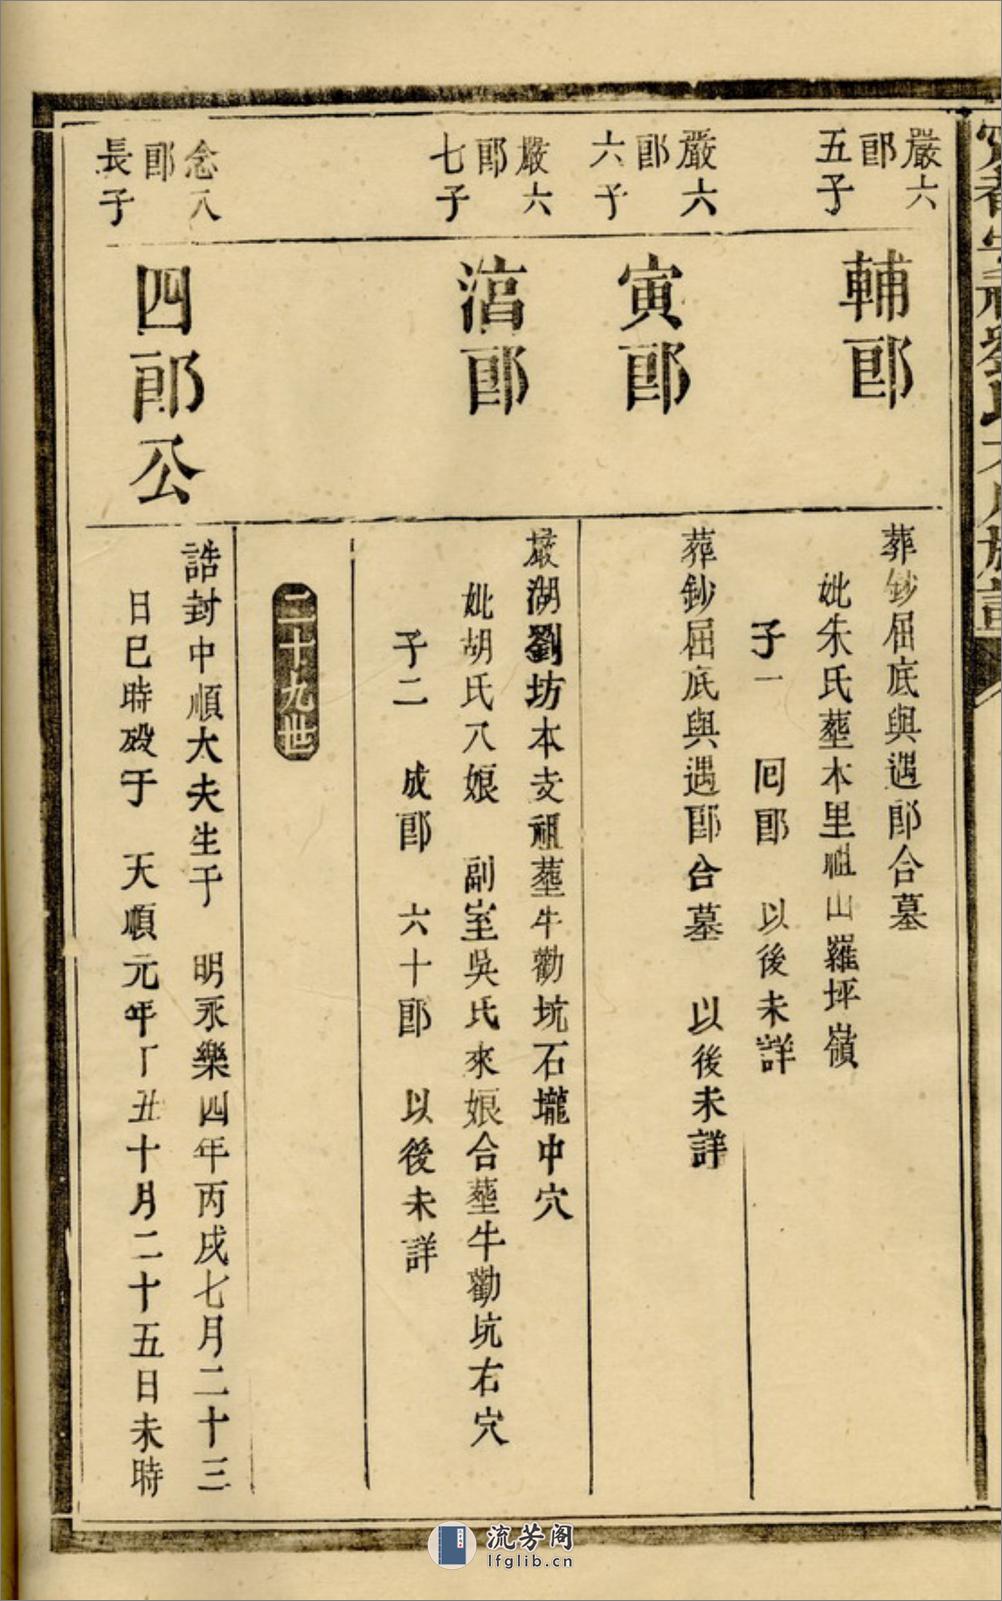 嚴六
郎
五子
輔郎
葬鈔屈底與遇郎合墓
妣朱氏塟本里祖山羅坪嶺
子一　回郎　以後未詳
嚴六
郎
六子
寅郎
葬鈔屈底與遇郎合墓　以後未詳
嚴六
郎
七子
湻郎
嚴湖劉坊本支祖塟牛勸坑石壠中穴
妣胡氏八娘　副室吳氏來娘合塟牛勸坑右穴
子二　成郎　六十郎　以後未詳
二十九世
念八
郎
長子
四郎公
誥封中順大夫生于　明永樂四年丙戌七月二十三
日巳時歿于　天順元年丁丑十月二十五日未時
流芳阁
lfglib.cn